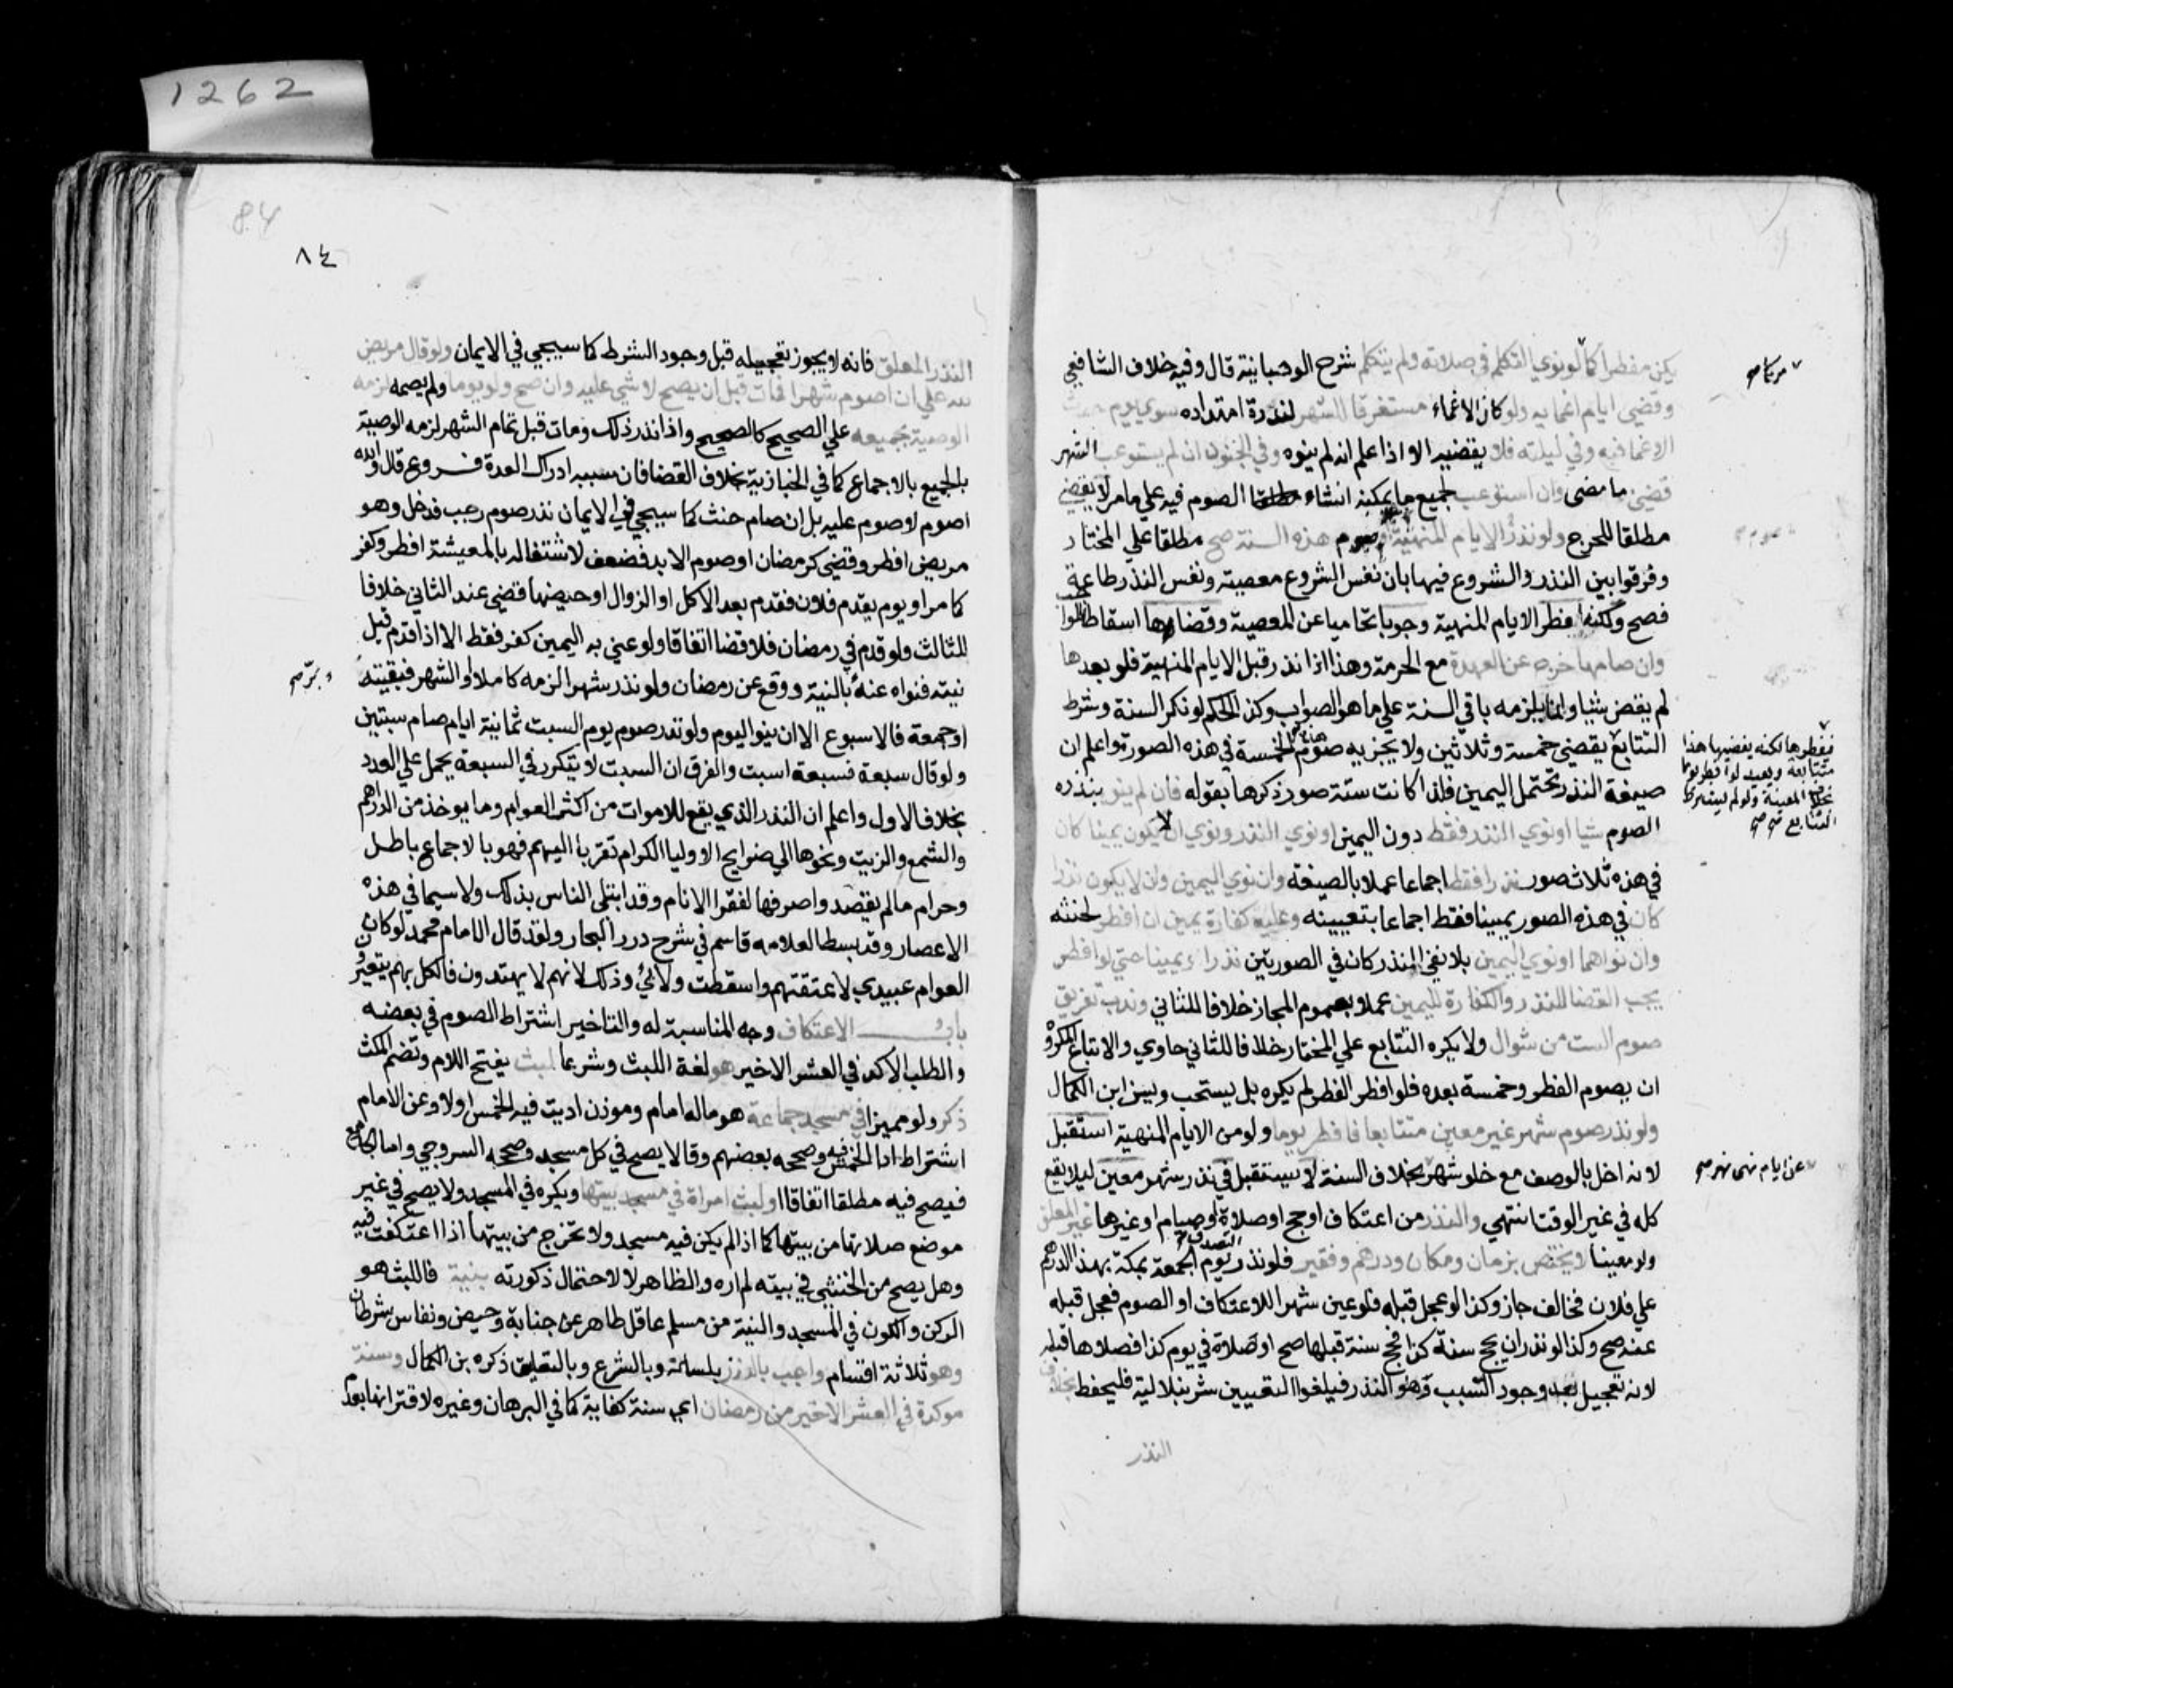 1262
يكن مفطرا كما لو نوي التكلم في صلاته ولم يتكلم شرح الوهبانية قال وفيه خلاف الشافعي
وقضي ايام اغمايه ولو كان الاغماء مستغرقا للشهر لندرة امتداده سوي يوم حدث
الاغما فيه وفي ليلته فلا يقضيه الا اذا علم انه لم ينوه وفي الجنون ان لم يستوعب الشهر
قضي ما مضى وان استوعب لجميع ما يمكنه انشاء الصوم فيه علي ما مر لا يقضي
مطلقا للحرج ولو نذر الايام المنهية او صوم هذه السنة صح مطلقا علي المختار
وفرقوا بين النذر والشروع فيها بان نفس الشروع معصية ونفس النذر طاعة
فصح ولكنه افطر الايام المنهية وجوبا تحاميا عن المعصية وقضاها اسقاطا للواجب
وان صامها خرج عن العهدة مع الحرمة وهذا اذا نذر قبل الايام المنهية فلو بعدها
لم يقض شيا وانما يلزمه باقي السنة علي ما هو الصواب وكذا الحكم لو نكر السنة وشرط
التتابع يقضي خمسة وثلاثين ولا يجزيه صوم الخمسة في هذه الصورة واعلم ان
صيغة النذر تحتمل اليمين فلذا كانت ستة صور ذكرها بقوله فان لم ينو بنذره
الصوم شيا او نوي النذر فقط دون اليمين او نوي النذر ونوي ان لا يكون يمينا كان
في هذه ثلاث صور نذرا فقط اجماعا عملا بالصيغة وان نوي اليمين وان لا يكون نذرا
كان في هذه الصور يمينا فقط اجماعا بتعيينه وعليه كفارة يمين ان افطر لحنثه
وان نواهما او نوي اليمين بلا نفي النذر كان في الصورتين نذرا ويمينا حتي لو افطر
يجب القضا للنذر والكفارة لليمين عملا بعموم المجاز خلافا للثاني وندب تفريق
صوم الست من شوال ولا يكره التتابع علي المختار خلافا للثاني حاوي والاتباع المكروه
ان يصوم الفطر وخمسة بعده فلو افطر الفطر لم يكره بل يستحب ويسن ابن الكمال
ولو نذر صوم شهر غير معين متتابعا فافطر يوما ولو من الايام المنهية استقبل
لانه اخل بالوصف مع خلو شهر بخلاف السنة لا يستقبل في نذر شهر معين ليلا يقع
كله في غير الوقت انتهي والنذر من اعتكاف او حج او صلاة او صيام او غيرها غير المعلق
ولو معينا لا يختص بزمان ومكان ودرهم وفقير فلو نذر التصدق يوم الجمعة بمكة بهذا الدرهم
علي فلان فخالف جاز وكذا لو عجل قبله فلو عين شهرا للاعتكاف او الصوم فعجل قبله
عنه صح وكذا لو نذر ان يحج سنة كذا فحج سنة قبلها صح او صلاة في يوم كذا فصلاها قبله
لانه تعجيل بعد وجود السبب وهو النذر فيلغوا التعيين شرنبلالية فليحفظ بخلاف
النذر
صوم
فيفطرها لكنه يقضيها هنا
متتابعة ويعيد لو افطر يوما
بخلاف المعينة ولو لم يشترط
التتابع
عن ايام نهي نهر صح
84
٨٤
النذر المعلق فانه لا يجوز تعجيله قبل وجود الشرط كما سيجي في الايمان ولو قال مريض
لله علي ان اصوم شهرا فمات قبل ان يصح لا شي عليه وان صح ولو يوما ولم يصمه لزمه
الوصية بجميعه علي الصحيح كالصحيح واذا نذر ذلك ومات قبل تمام الشهر لزمه الوصية
بالجميع بالاجماع كما في الخبازية بخلاف القضا فان سببه ادراك العدة فروع قال والله
اصوم لا صوم عليه بل ان صام حنث كما سيجي في الايمان نذر صوم رجب فدخل وهو
مريض افطر وقضي كرمضان او صوم الابد فضعف لاشتغاله بالمعيشة افطر وكفر
كما مر او يوم يقدم فلان فقدم بعد الاكل او الزوال او حيضها قضي عند الثاني خلافا
للثالث ولو قدم في رمضان فلا قضا اتفاقا ولو عني به اليمين كفر فقط الا اذا قدم قبل
نيته فنواه عنه بالنية ووقع عن رمضان ولو نذر شهرا لزمه كاملا او الشهر فبقيته
او جمعة فالاسبوع الا ان ينوي اليوم ولو نذر صوم يوم السبت ثمانية ايام صام سبتين
ولو قال سبعة فسبعة اسبت والفرق ان السبت لا يتكرر في السبعة يحمل علي العدد
بخلاف الاول واعلم ان النذر الذي يقع للاموات من اكثر العوام وما يوخذ من الدراهم
والشمع والزيت ونحوها الي ضرايح الاوليا الكرام تقربا اليهم فهو بالاجماع باطل
وحرام ما لم يقصدوا صرفها لفقرا الانام وقد ابتلي الناس بذلك ولا سيما في هذه
الاعصار وقد بسطه العلامه قاسم في شرح درر البحار ولقد قال الامام محمد لو كان
العوام عبيدي لاعتقتهم واسقطت ولائي وذلك لانهم لا يهتدون فالكل بهم يتغيرون
باب الاعتكاف وجه المناسبة له والتاخير اشتراط الصوم في بعضه
والطلب الاكد في العشر الاخير هو لغة اللبث وشرعا لبث بفتح اللام وتضم المكث
ذكر ولو مميزا في مسجد جماعة هو ماله امام وموذن اديت فيه الخمس اولا وعن الامام
اشتراط ادا الخمس فيه وصححه بعضهم وقالا يصح في كل مسجد وصححه السروجي واما الجامع
فيصح فيه مطلقا اتفاقا او لبث امراة في مسجد بيتها ويكره في المسجد ولا يصح في غير
موضع صلاتها من بيتها كما اذا لم يكن فيه مسجد ولا تخرج من بيتها اذا اعتكفت فيه
وهل يصح من الخنثى في بيته لم اره والظاهر لا لاحتمال ذكورته بنية فاللبث هو
الركن والكون في المسجد والنية من مسلم عاقل طاهر عن جنابة وحيض ونفاس شرطان
وهو ثلاثة اقسام واجب بالنذر بلسانه وبالشرع وبالتعليق ذكره بن الكمال وسنة
موكدة في العشر الاخير من رمضان اي سنة كفاية كما في البرهان وغيره لاقترانها بعدم